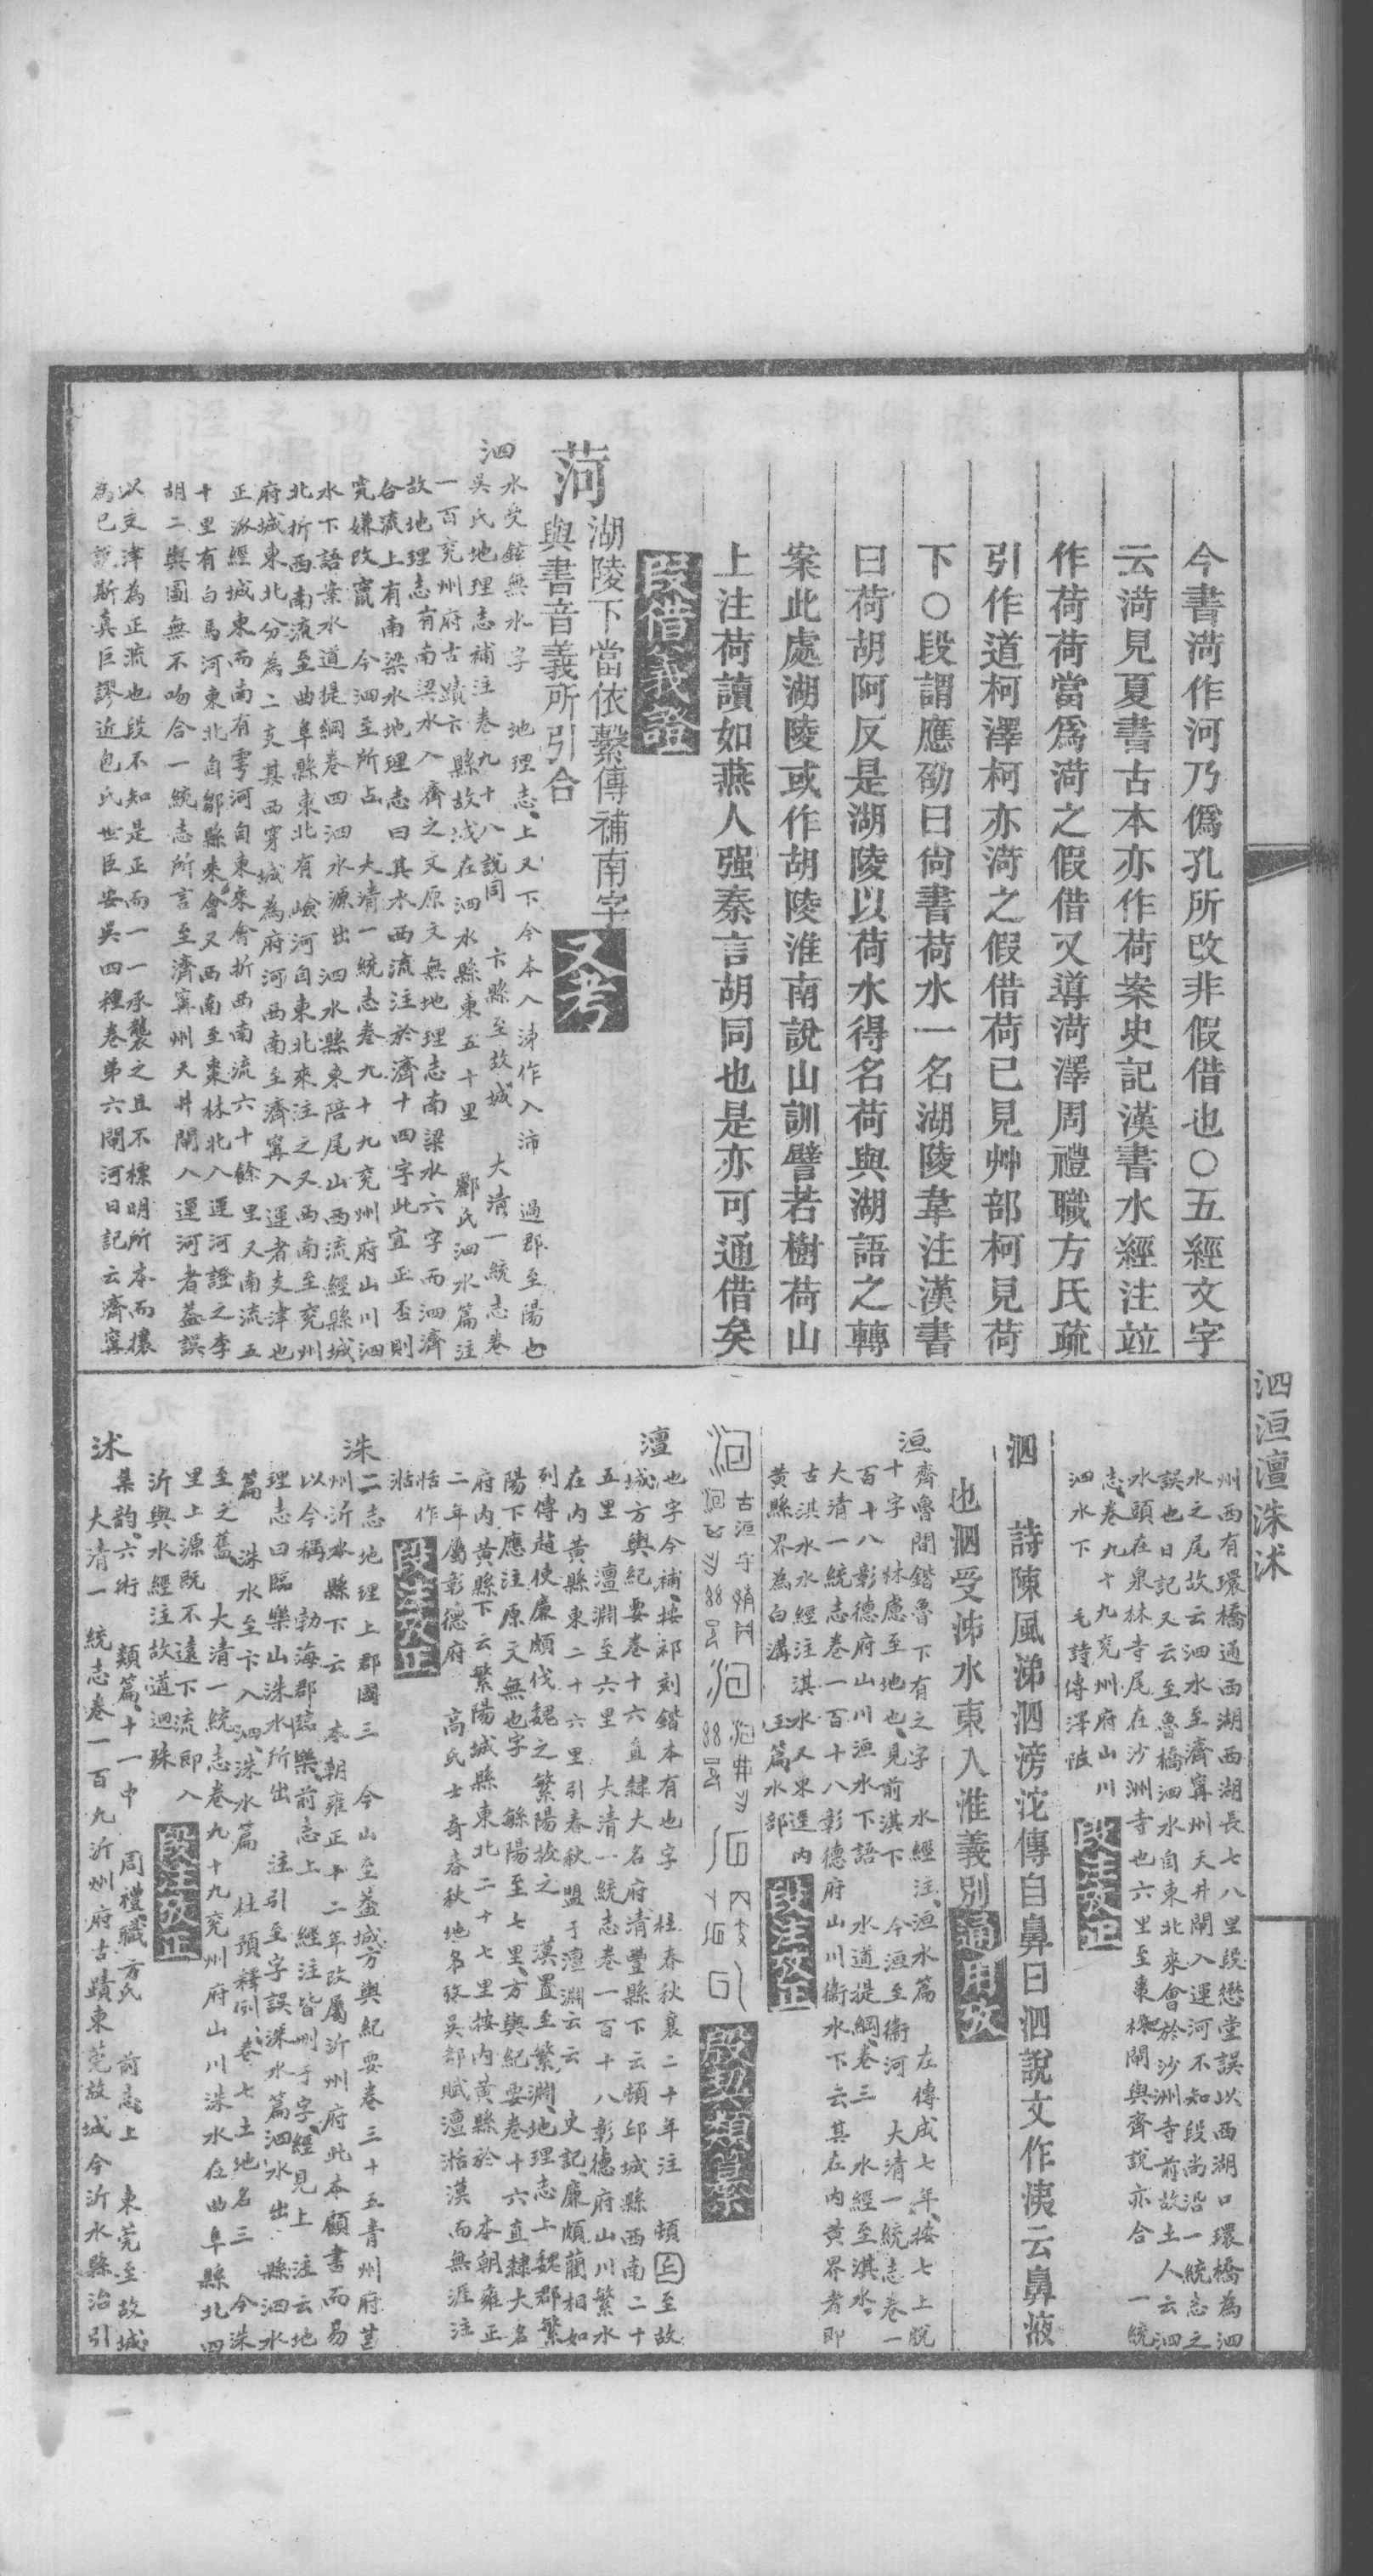 今書菏作河乃僞孔所改非假借也○五經文字
云菏見夏書古本亦作荷案史記漢書水經注竝
作荷荷當爲菏之假借又導菏澤周禮職方氏疏
引作道柯澤柯亦菏之假借荷已見艸部柯見荷
下○段謂應劭曰尙書荷水一名湖陵韋注漢書
曰荷胡阿反是湖陵以荷水得名荷與湖語之轉
案此處湖陵或作胡陵淮南說山訓譬若樹荷山
上注荷讀如燕人强秦言胡同也是亦可通借矣
段借義證
菏
湖陵下當依繫傳補南字
與書音義所引合
又考
泗
水受鉉無水字 地理志上又下今本入泲作入沛 過郡至陽也
吳氏地理志補注卷九十八說同 卞縣至故城 大清一統志卷
一百兗州府古蹟卞縣故城在泗水縣東五十里 酈氏泗水篇注
故地理志有南梁水入齊之文原文無地理志南梁水六字而泗濟
合流上有南梁水地理志曰其水西流注於濟十四字此宜正否則
究嫌改竄 今泗至所占 大清一統志卷九十九兗州府山川泗
水下語案水道提綱卷四泗水源出泗水縣東陪尾山西流經縣城
北折西南流至曲阜縣東北有嶮河自東北來注之又西南至兗州
府城東北分為二支其西穿城為府河西南至濟寧入運者支津也
正派經城東而南有雩河自東來會折西南流六十餘里又南流五
十里有白馬河東北自鄒縣來會又西南至棗林北入運河證之李
胡二輿圖無不吻合一統志所言至濟寧州天井閘入運河者蓋誤
以支津為正流也段不知是正而一一承襲之且不標明所本而攘
為已說斯真巨謬近包氏世臣安吳四種卷弟六閘河日記云濟寧
泗洹澶洙沭
州西有環橋通西湖西湖長七八里段懋堂誤以西湖口環橋為泗
水之尾故云泗水至濟寧州天井閘入運河不知段尚沿一統志之
誤也日記又云至魯橋泗水自東北來會於沙洲寺前故土人云泗
水頭在泉林寺尾在沙洲寺也六里至棗林閘與齊說亦合 一統
志卷九十九兗州府山川
泗水下 毛詩傳澤陂
段注攷正
泗 詩陳風涕泗滂沱傳自鼻曰泗說文作洟云鼻液
也泗受泲水東入淮義別
通用攷
洹
齊魯間鍇魯下有之字 水經注洹水篇 左傳成七年按七上脫
十字 林慮至地也見前淇下 今洹至衛河 大清一統志卷一
百十八彰德府山川洹水下語 水道提綱卷三 水經至淇水
大清一統志卷一百十八彰德府山川衛水下云其在內黃界者即
古淇水水經注淇水又東逕內
黃縣界為白溝 玉篇水部
段注攷正
古洹字
殷契類纂
澶
也字今補按祁刻鍇本有也字 杜春秋襄二十年注 頓丘至故
城方輿紀要卷十六直隸大名府清豐縣下云頓邱城縣西南二十
五里 澶淵至六里 大清一統志卷一百十八彰德府山川繁水
在內黃縣東二十六里引春秋盟于澶淵云云 史記廉頗藺相如
列傳趙使廉頗伐魏之繁陽拔之 漢置至繁淵地理志上魏郡繁
陽下應注原文無也字 繇陽至七里方輿紀要卷十六直隸大名
府內黃縣下云繁陽城縣東北二十七里按內黃縣於 本朝雍正
二年屬彰德府 高氏士奇春秋地名攷 吳都賦澶湉漠而無涯注
恬作
湉
段注攷正
洙
二志地理上郡國三 今山至蓋城方輿紀要卷三十五青州府莒
州沂水縣下云 本朝雍正十二年改屬沂州府此本顧書而易
以今稱 勃海郡臨樂前志上 經注皆刪于字經見上 注云地
理志曰臨樂山洙水所出 注引至字誤洙水篇泗水出 縣泗水
篇 洙水至卞入泗洙水篇 杜預釋例卷七土地名三 今洙
至之舊 大清一統志卷九十九兗州府山川洙水在曲阜縣北四
里上源既不遠下流即入
沂與水經注故道迥殊
段注攷正
沭
集韵六術 類篇十一中 周禮職方氏 前志上 東莞至故城
大清一統志卷一百九沂州府古蹟東莞故城今沂水縣治引